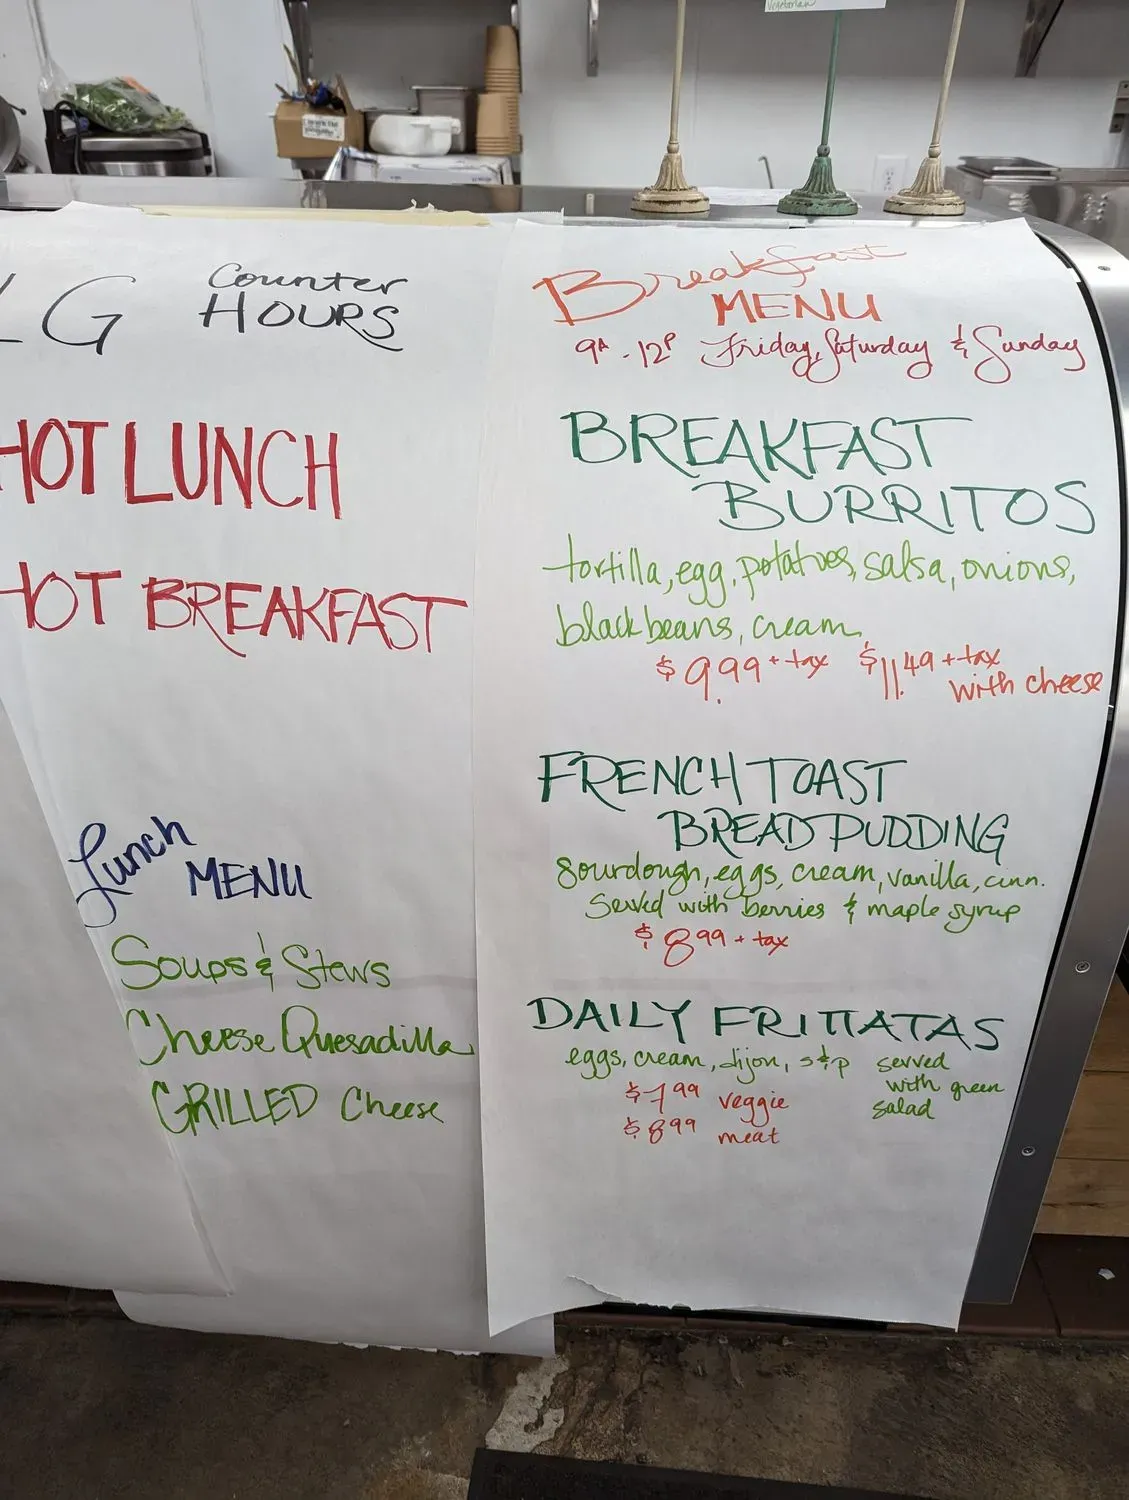 LG Counter
HOURS
HOT LUNCH
HOT BREAKFAST
Lunch
MENU
Soups & Stews
Cheese Quesadilla
GRILLED Cheese
Vegetarian
Breakfast
MENU
9A - 12P Friday, Saturday & Sunday
BREAKFAST
BURRITOS
tortilla, egg, potatoes, salsa, onions,
black beans, cream
$9.99 + tax $11.49 + tax
with cheese
FRENCH TOAST
BREAD PUDDING
sourdough, eggs, cream, vanilla, cinn.
Served with berries & maple syrup
$8.99 + tax
DAILY FRITTATAS
eggs, cream, dijon, s&p served
with green
salad
$7.99 veggie
$8.99 meat